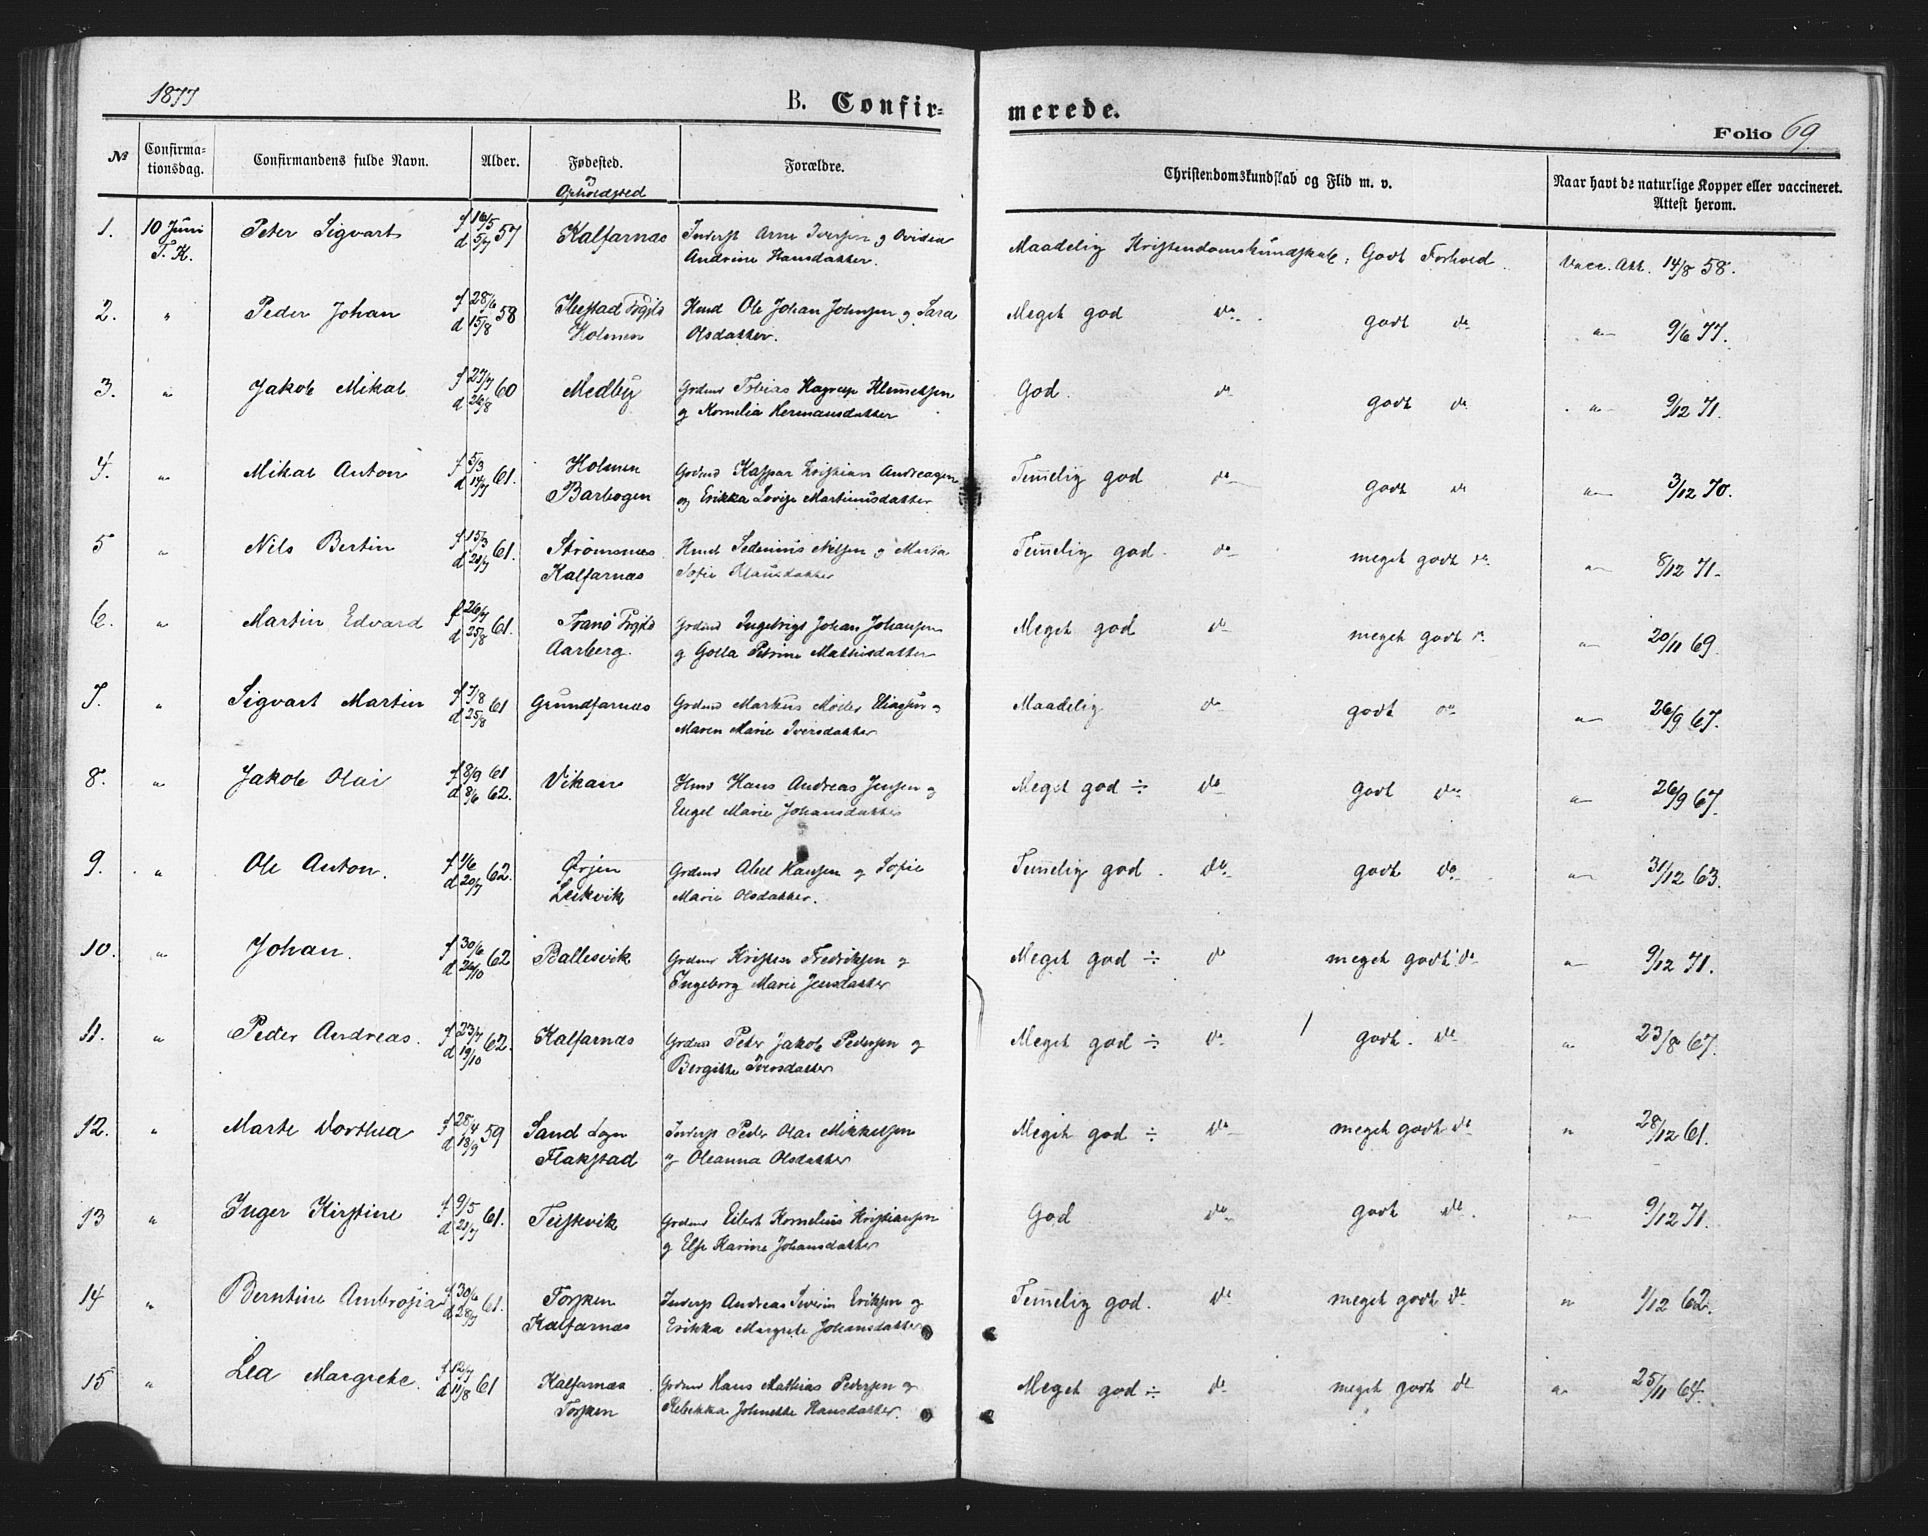 1877
B. Confir=
merede.
Folio 69.
No
Confirma=
tionsdag.
Confirmandens fulde Navn.
Alder.
Fødested.
og
Opholdssted
Forældre.
Christendomskundskab og Flid m. v.
Naar havt de naturlige Kopper eller vaccineret.
Attest herom.
1. 10 Juni Peter Sigvart f 16/5 57 Kalfarnæs Inderst Arne Iversen og Ovidia Maadelig Kristendomskundskab, Godt Forhold. Vacc. Att. 14/8 58.
T. K. d 5/7 Andrine Hansdatter.
2. " Peder Johan f 28/6 58 Hmd Ole Johan Johnsen og Sara Meget god do godt do " 9/6 77.
d 15/8 Holmen Olsdatter.
3. " Jakob Mikal f 27/7 60 Medby Grdmd Tobias Klemetsen God. do godt do " 9/12 71.
d 26/8 og Kornelia Hermansdatter
4. " Mikal Anton f 5/3 61. Holmen Grdmd Kaspar Kristian Andreasen Temelig god do godt do " 3/12 70.
d 14/7 Barbogen og Erikka Lovise Martinusdatter
5 " Nils Bertin f 15/3 61. Strømsnæs Hmd Sedenius Nilsen og Marta Temelig god. do meget godt do " 8/12 71.
d 21/7 Kalfarnæs Sofie Klausdatter
6. " Martin Edvard f 26/7 61. Tranø Grdmd Ingebrigt Johan Johansen Meget god do meget godt do " 20/11 69.
d 25/8 Aarberg. og Golla Petrine Mathisdatter
7. " Sigvart Martin f 7/8 61 Grundfarnæs Grdmd Markus Møller Eliassen og Maadelig do godt do " 26/9 67.
d 25/8 Maren Marie Iversdatter
8. " Jakob Olai f 8/9 61 Vikan Hmd Hans Andreas Jensen og Meget god ÷ do godt do " 26/9 67.
d 8/6 62. Engel Marie Johansdatter
9. " Ole Anton. f 1/6 62. Ørjen Grdmd Abel Hansen og Sofie Temelig god. do godt do " 31/12 63.
d 20/7 Leikvik Marie Olsdatter.
10. " Johan. f 30/6 62 Ballesvik Grdmd Kristen Fredriksen og Meget god ÷ do meget godt do " 9/12 71.
d 26/10 Ingeborg Marie Jensdatter
11. " Peder Andreas. f 23/7 62. Kalfarnæs Grdmd Peter Jakob Pedersen og Meget god ÷ do godt. do " 23/8 67.
d 19/10 Bergitte Iversdatter
12. " Marte Dorthea f 28/4 59 Sand Inderst Peder Olai Mikkelsen Meget god ÷ do meget godt do " 28/12 61.
d 18/9 Flakstad og Oleanna Olsdatter
13 " Inger Kirstine f 9/5 61. Teistvik Grdmd Eilert Kornelius Kristiansen God do godt do. " 9/12 71.
d 21/7 og Else Karine Johansdatter
14 " Berntine Ambrosia f 30/6 61. Torsken Inderst Andreas Severin Eriksen og Temelig god. do meget godt do " 1/12 62.
d 28/7 Kalfarnæs Erikka Margrete Johansdatter
15 " Lea Margrete. f 12/7 61 Kalfarnæs Grdmd Hans Mathias Pedersen og Meget god ÷ do meget godt do " 25/11 64.
d 11/8 Torsken Rebekka Johnette Hansdatter.